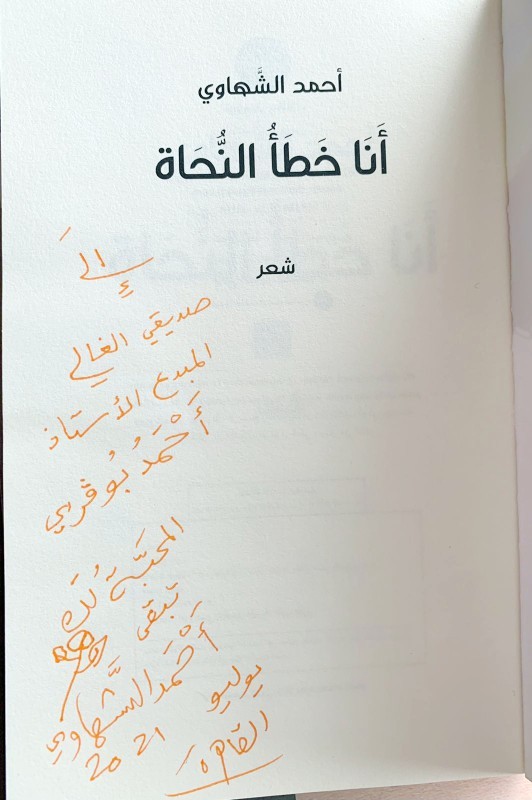 أحمد الشَّهاوي
أَنَا خَطَأُ النُّحَاة
شعر
إلىَ
صديقي الغالي
المبدع الأستاذ
أَحْمَدُ بُوقري
المحبَّةُ لَكَ
تبقى
أَحْمَد الشَّهاوي
يوليو 2021
القاهرة